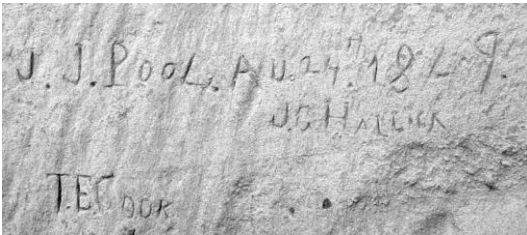 J. J. POOL. AU. 24TH. 1849.
J.G. HALLICK
T.E. COOK